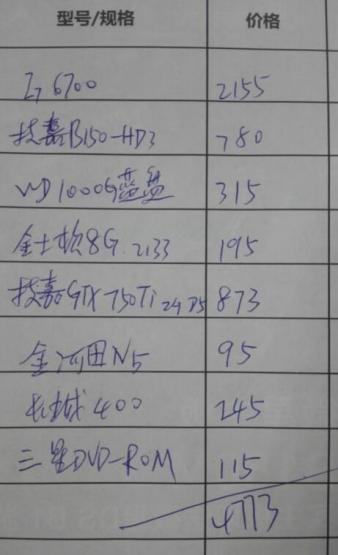 型号/规格 价格
I7 6700 2155
技嘉B150-HD3 780
WD 1000G蓝盘 315
金士顿8G 2133 195
技嘉GTX 750Ti 2G D5 873
金河田N5 95
长城400 245
三星DVD-ROM 115
4773